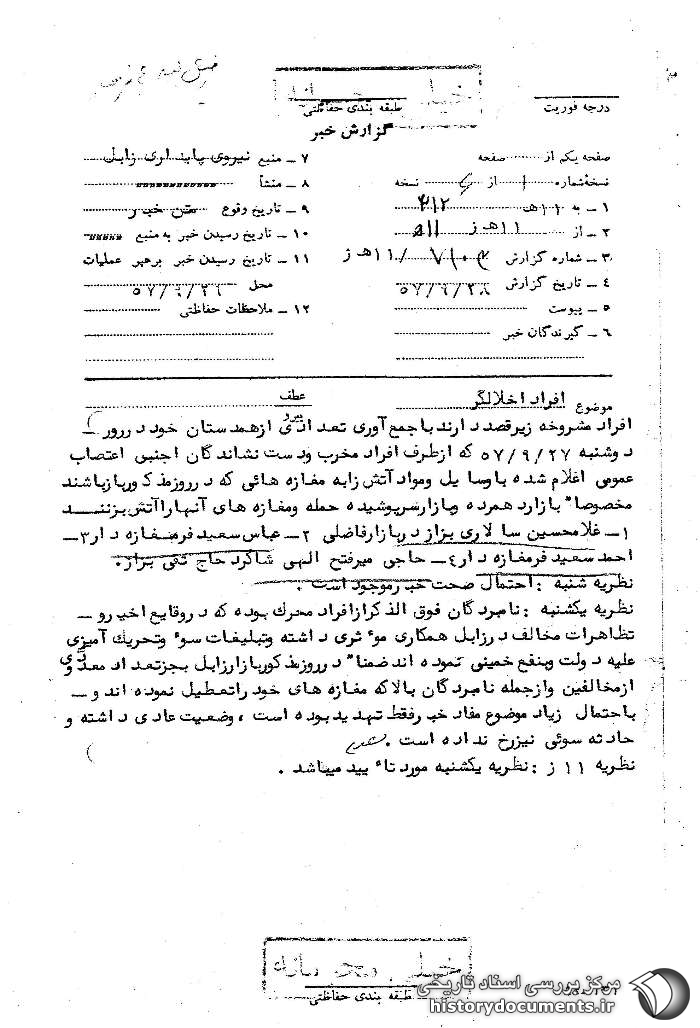 درجه فوریت
طبقه بندی حفاظتی
گزارش خبر
صفحه یکم از صفحه
نسخه‌شماره ۱ از نسخه
۱ـ به ۱۱هـ ۳۱۲
۲ـ از ۱۱هـ ز
۳ـ شماره گزارش /۱۱هـ ز
۴ـ تاریخ گزارش ۵۷/۹/۲۸
۵ـ پیوست
۶ـ گیرندگان خبر
۷ـ منبع نیروی پایداری زابل
۸ـ منشأ
۹ـ تاریخ وقوع متن خبر
۱۰ـ تاریخ رسیدن خبر به منبع
۱۱ـ تاریخ رسیدن خبر برهبر عملیات
محل ۵۷/۹/۲۶
۱۲ـ ملاحظات حفاظتی
موضوع افراد اخلالگر عطف
افراد مشروحه زیرقصد دارند با جمع آوری تعدادی از همدستان خود در روز
دوشنبه ۵۷/۹/۲۷ که ازطرف افراد مخرب ودست نشاندگان اجنبی اعتصاب
عمومی اعلام شده با وسایل ومواد آتش زا به مغازه هائی که در روز مذکور باز باشند
مخصوصا" بازارد همرده وبازار سرپوشیده حمله ومغازه های آنها را آتش بزنند
۱ـ غلامحسین سالاری بزاز در بازار فاضلی ۲ـ عباس سعید فر مغازه دار ۳ـ
احمد سعید فر مغازه دار ۴ـ حاجی میرفتح الهی شاگرد حاج تقی بزاز.
نظریه شنبه : احتمال صحت خبر موجود است .
نظریه یکشنبه : نامبردگان فوق الذکر از افراد محرک بوده که در وقایع اخیر و ـ
تظاهرات مخالف در زابل همکاری موءثری داشته وتبلیغات سوء وتحریک آمیزی
علیه دولت وبنفع خمینی نموده اند ضمنا" در روز مذکور بازار زابل بجز تعداد معدودی
از مخالفین وازجمله نامبردگان بالا که مغازه های خود را تعطیل نموده اند و ـ
باحتمال زیاد موضوع مفاد خبر فقط تهدید بوده است ، وضعیت عادی داشته و
حادثه سوئی نیز رخ نداده است .
نظریه ۱۱ ز : نظریه یکشنبه مورد تاءیید میباشد .
طبقه بندی حفاظتی
مرکز بررسی اسناد تاریخی
historydocuments.ir